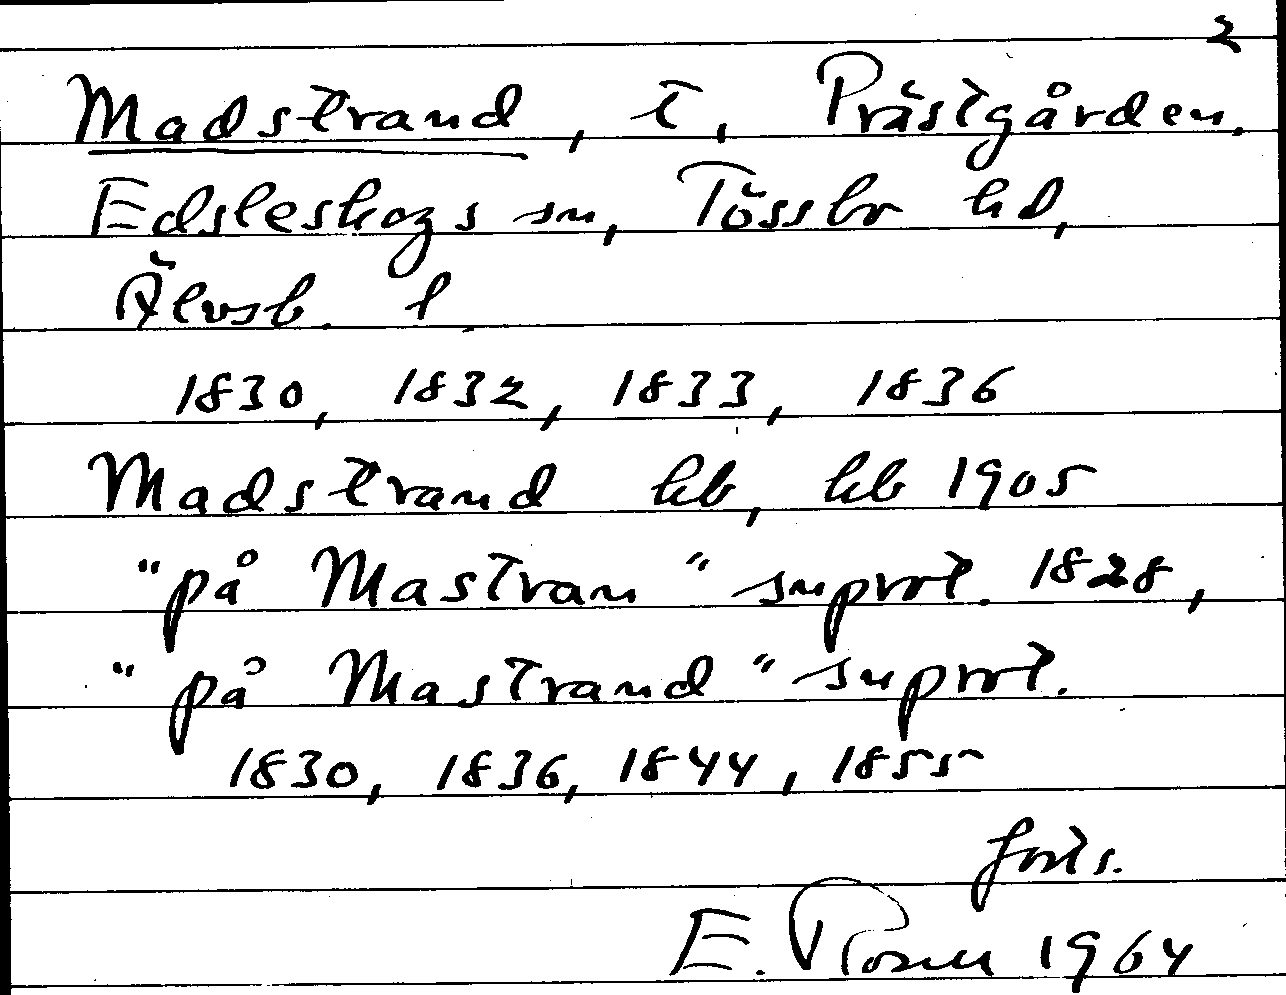 2
Madstrand, t, Prästgården,
Edsleskogs sn, Tössbo hd,
Älvsb. l
1830, 1832, 1833, 1836
Madstrand hb, hb 1905
"på Mastran" snprot. 1828,
"på Mastrand" snprot.
1830, 1836, 1844, 1855
forts.
E. Rosell 1964